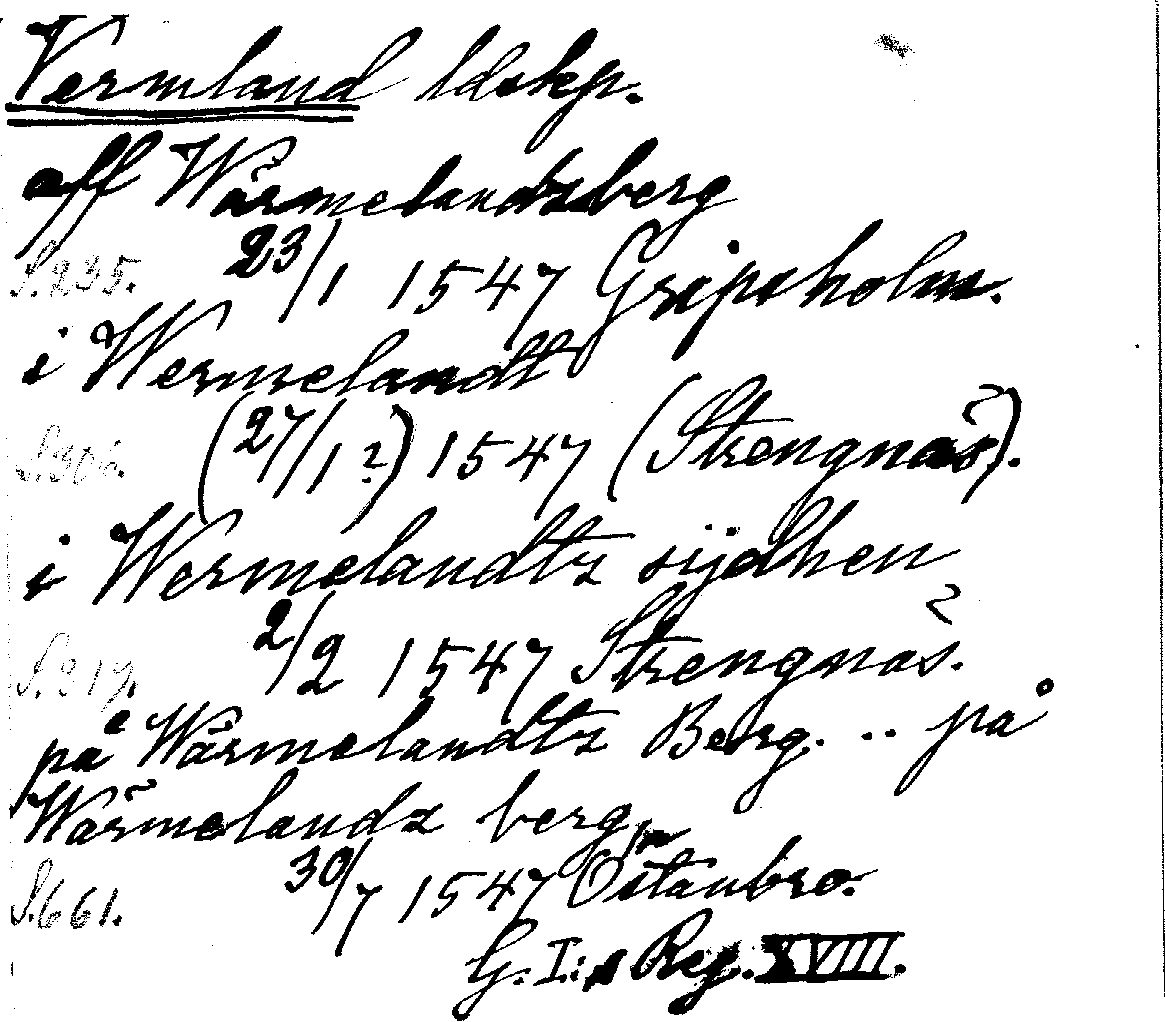 Vermland ldskp.
aff Wärmelandzberg
S. 235. 23/1 1547 Gripsholm.
i Wermelandt
S. 306. (27/1?) 1547 (Strengnäs).
i Wermelandtz sijdhen
S. 319. 2/2 1547 Strengnäs.
på Wärmelandtz Berg. .. på
Wärmelandz berg
S. 661. 30/7 1547 Östanbro.
G. I:s Reg. XVIII.